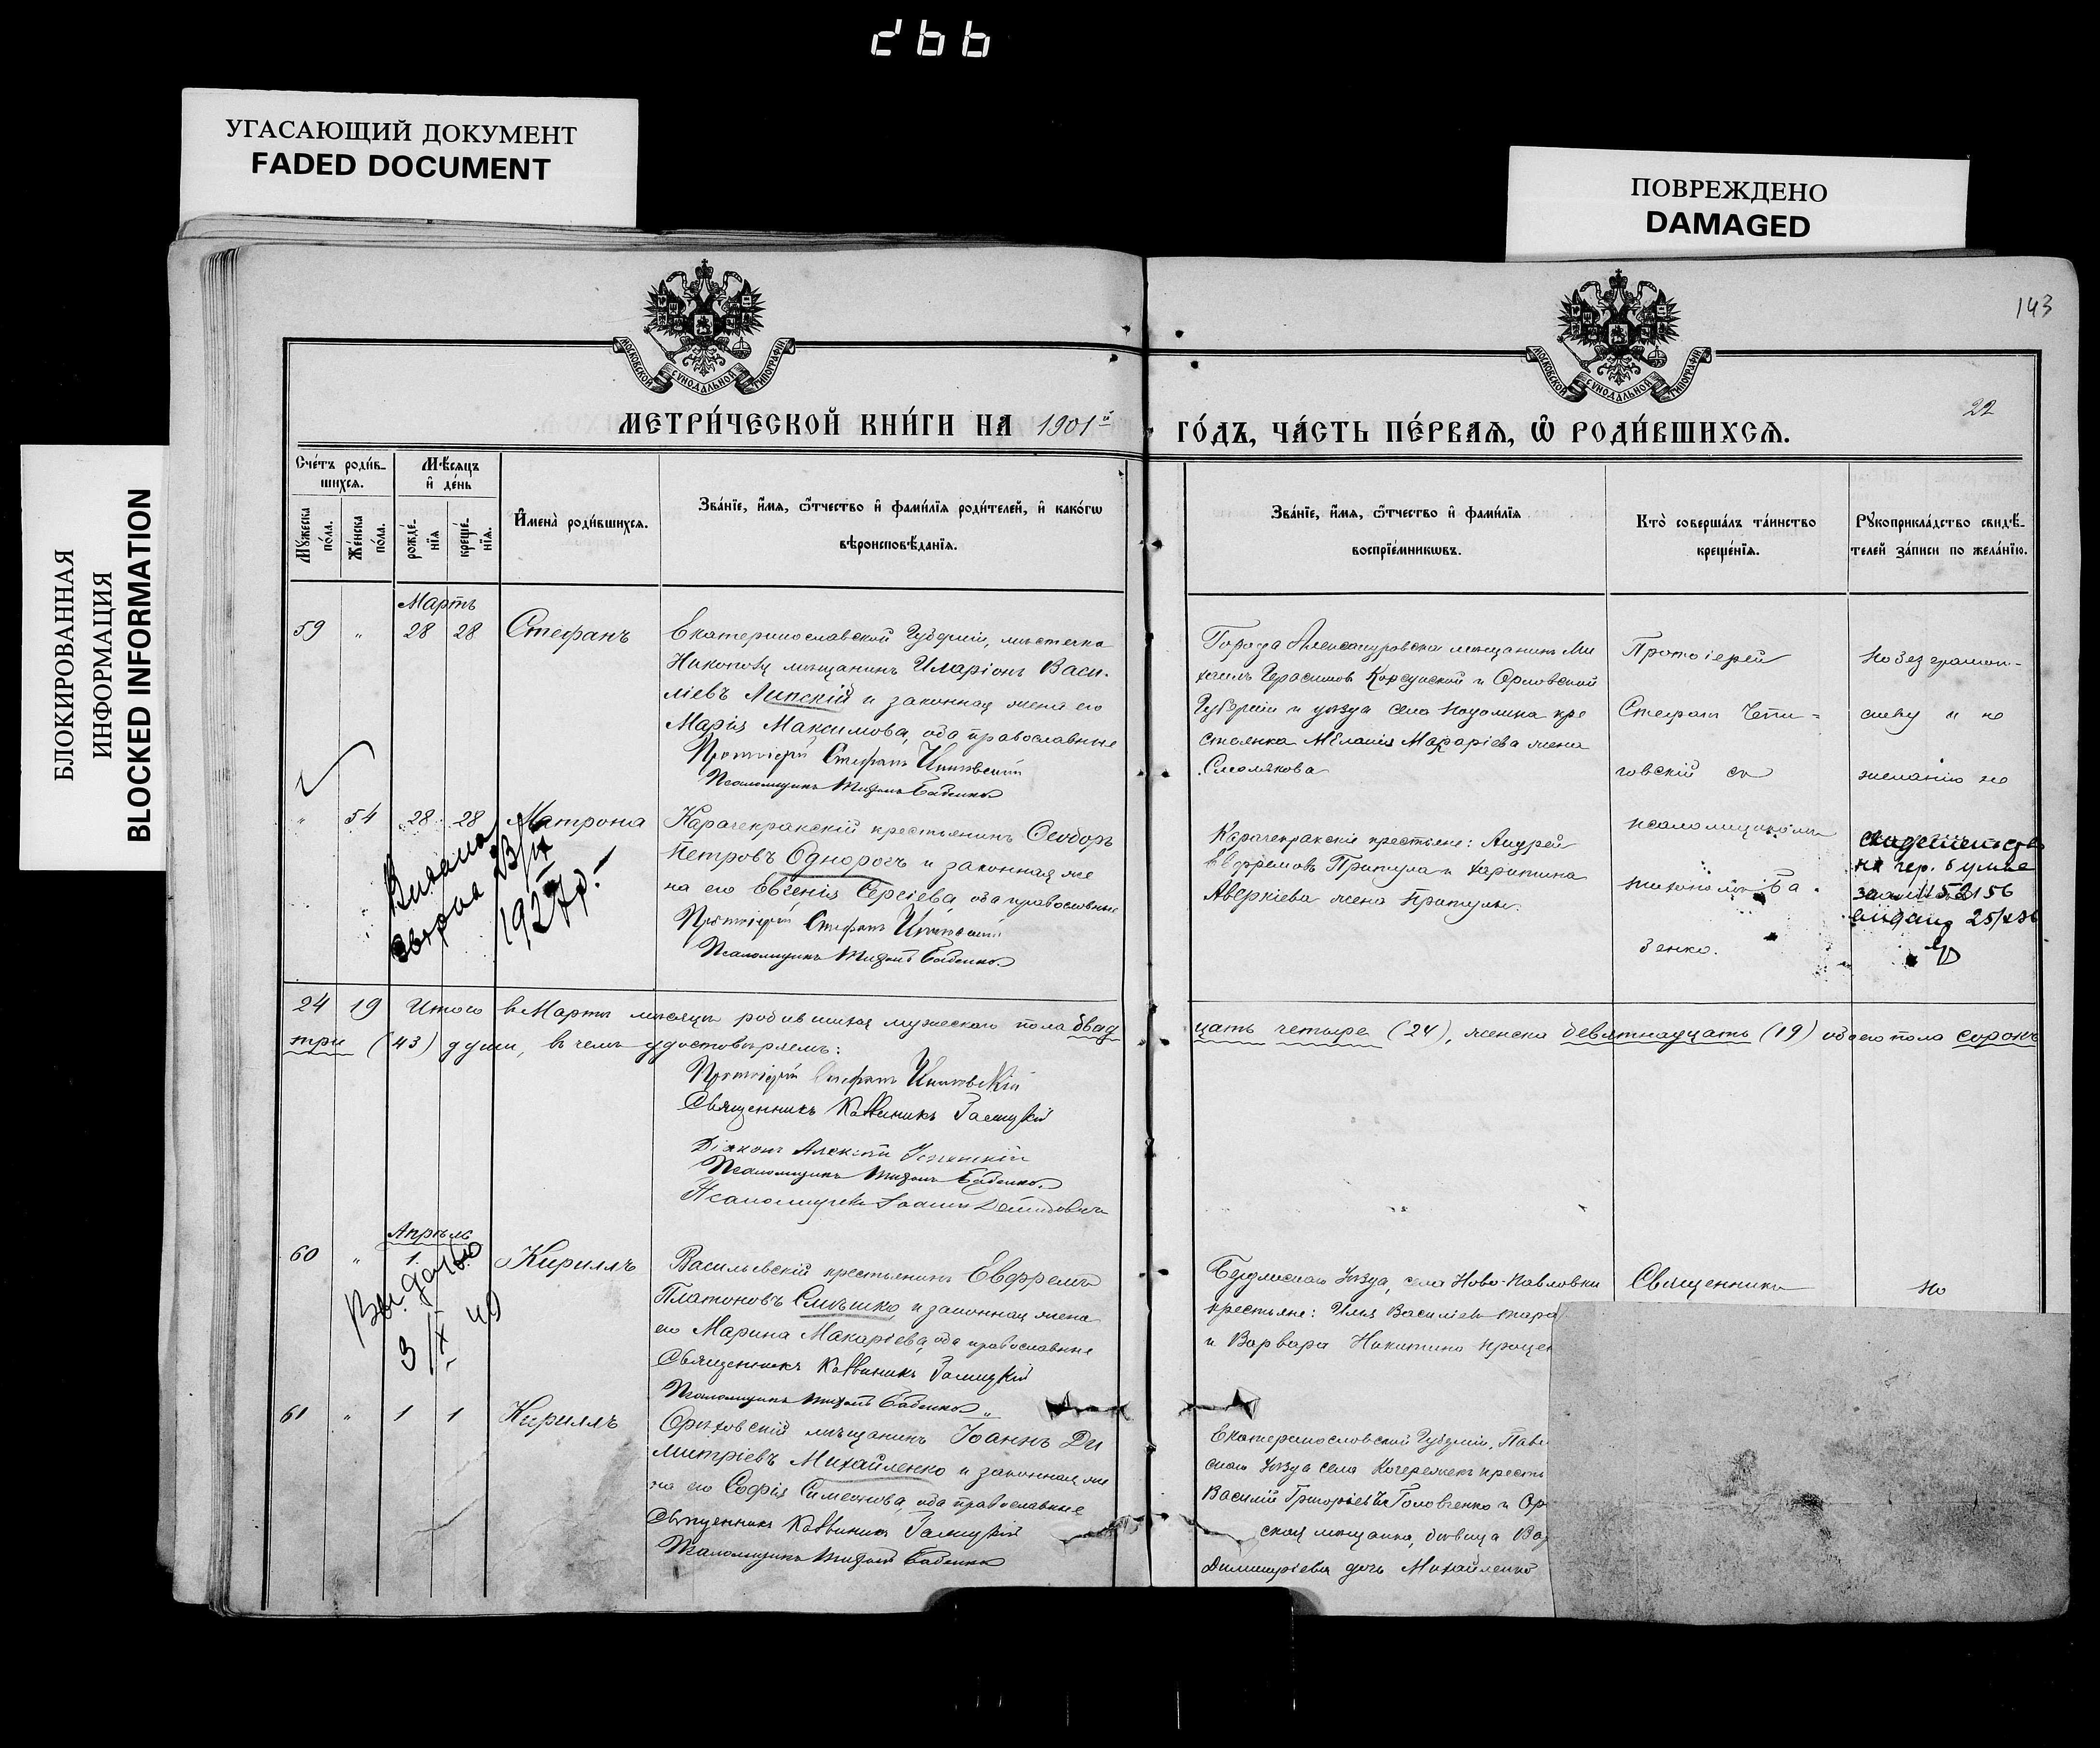 266
УГАСАЮЩИЙ ДОКУМЕНТ
FADED DOCUMENT
ПОВРЕЖДЕНО
DAMAGED
БЛОКИРОВАННАЯ
ИНФОРМАЦИЯ
BLOCKED INFORMATION
143
22
МОСКОВСКОЙ СУНОДАЛЬНОЙ ТИПОГРАФІИ
МОСКОВСКОЙ СУНОДАЛЬНОЙ ТИПОГРАФІИ
МЕТРИ́ЧЕСКОЙ КНИ́ГИ НА 1901й ГО́ДЪ, ЧА́СТЬ ПЕ́РВАЯ, Ѡ РОДИ́ВШИХСЯ.
Сче́тъ роди́в-
шихся.
Мѣ́сяцъ
и҆ де́нь
Мꙋ́жеска
по́ла.
Же́нска
по́ла.
рожде́-
нїя
креще́-
нїя.
И҆мена̀ роди́вшихся.
Зва́нїе, и҆́мя, ѻ҆́тчество и҆ фами́лїя роди́телей, и҆ како́гѡ
вѣроисповѣ́данїя.
Зва́нїе, и҆́мя, ѻ҆́тчество и҆ фами́лїя
воспрїе́мникѡвъ.
Кто̀ соверша́лъ та́инство
креще́нїя.
Рꙋкоприкла́дство свидѣ́-
телей за́писи по жела́нїю.
Мартъ
59 " 28 28 Стефанъ
Екатеринославской Губерніи, мѣстечка
Никополя мѣщанинъ Иларіонъ Васи-
ліевъ Липскій и законная жена его
Марія Максимова, оба православные
Протоіерей Стефанъ
Псаломщикъ Тихонъ Бабенко
Города Александровска мѣщанинъ Ми
хаилъ Герасимов и Орловской
Губерніи и уѣзда села кре
стьянка Меланія Макаріева жена
Смолякова
Протоіерей
Стефанъ
говскій съ
псаломщикомъ
Тихономъ Ба-
бенко.
По безграмот-
ству и не
желанію не
" 54 28 28 Матрона
Карачекракскій крестьянинъ Ѳеодоръ
Петровъ Однорогъ и законная же
на его Евгенія Сергіева оба православные
Протоіерей Стефанъ
Псаломщикъ Тихонъ Бабенко
Карачекракскіе крестьяне: Андрей
Евфремовъ Притула и Харитина
Аверкіева жена Притулы.
Выдана
1927р.-
на гер. бумаге
выдано 25/X 36
24 19 Итого въ Мартѣ мѣсяцѣ родившихся мужескаго пола двад
цать четыре (24), женска девятнадцать (19) обоего пола сорокъ
три (43) души, въ чемъ удостовѣряемъ:
Протоіерей Стефанъ
Священникъ Каллиникъ Галицкій
Діаконъ Алексѣй
Псаломщикъ Тихонъ Бабенко
Псаломщикъ Іоаннъ Демидовичъ
Апрѣль
60 " 1 Кириллъ
Васильевскій крестьянинъ Евфремъ
Платоновъ Смѣшко и законная жена
его Марина Макаріева, оба православные
Священникъ Каллиникъ Галицкій
Псаломщикъ Тихонъ Бабенко
Бердянскаго Уѣзда, села Ново-Павловки
крестьяне: Илья Василіевъ Тара
и Варвара Никитина Процен
Священникъ
По
3/X 40
61 " 1 1 Кириллъ
Орѣховскій мѣщанинъ Іоаннъ Ди
митріевъ Михайленко и законная же
на его Софія Симеонова, оба православные
Священникъ Каллиникъ Галицкій
Псаломщикъ Тихонъ Бабенко
Екатеринославской Губерніи, Павл
скаго Уѣзда села Кочережекъ кресть
Василій Григоріевъ Головченко и Ор
ская мѣщанка, дѣвица Ва
Димитріева дочь Михайленко